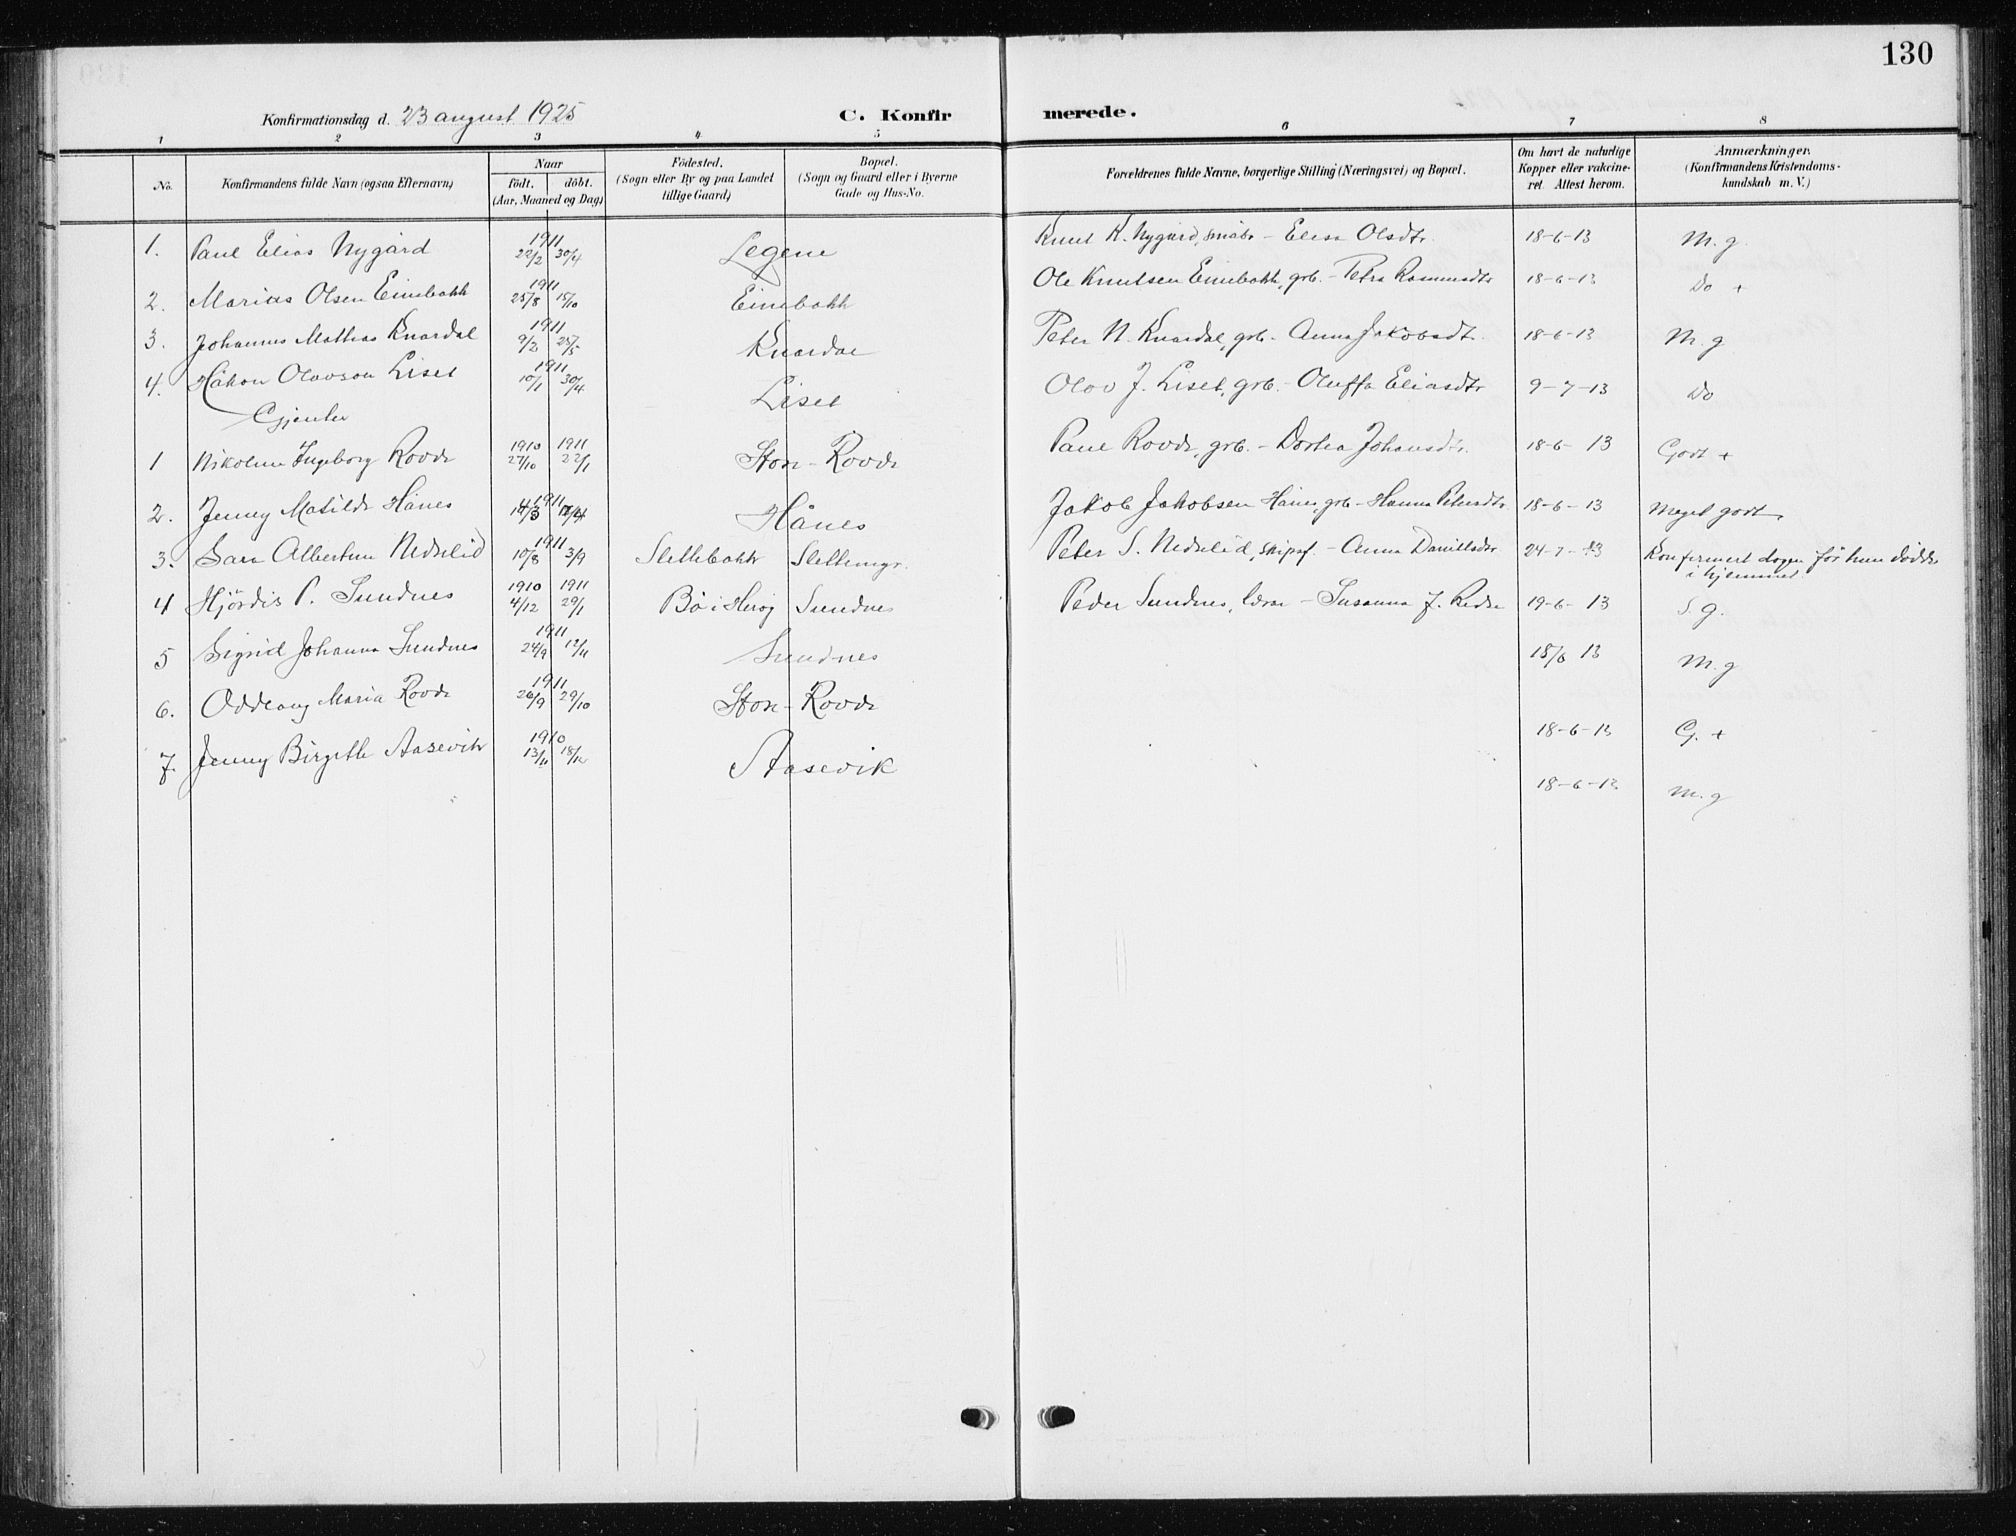 130
Konfirmationsdag d. 23 august 1925 C. Konfirmerede.
1 2 3 4 5 6 7 8
No. Konfirmandens fulde Navn (ogsaa Efternavn) Naar födt. döbt. (Aar, Maaned og Dag) Födested. (Sogn eller By og paa Landet tillige Gaard) Bopæl. (Sogn og Gaard eller i Byerne Gade og Hus-No. Forældrenes fulde Navne, borgerlige Stilling (Næringsvei) og Bopæl. Om havt de naturlige Kopper eller vakcineret Attest herom. Anmærkninger. (Konfirmandens Kristendomskundskab m. V.)
1. Paul Elias Nygård 1911 22/2 30/4 Legene Knut K. Nygård, småbr - Elisa Olsdtr. 18-6-13 M.g.
2. Marius Olsen Einebakk 1911 25/8 15/10 Einebakk Ole Knutsen Einebakk, grb. - Petra Rasmusdtr 18-6-13 Do +
3. Johannes Mathias Knardal 1911 9/2 25/5 Knardal Peter N. Knardal, grb. - Anna Jakobsdt. 18-6-13 M.g
4. Håkon Olavson Liset 1911 10/1 30/4 Liset Olav J. Liset, grb. - Oluffa Eliasdtr 9-7-13 Do
Gjenter
1 Nikoline Ingeborg Rovde 1910 27/10 1911 22/1 Ston-Rovde Paul Rovde, grb. - Dortea Johansdtr. 18-6-13 Godt +
2. Jenny Matilde Hånes 1911 Hånes Jakob Jakobsen Hånes, grb - Hanna Petersdtr 18-6-13 Meget godt
3. Sara Albertine Nedrelid 1911 10/8 3/9 Slettebakk Slettemyr. Peter S. Nedrelid, skipsf. - Anna Danielsdtr 24-7-13 Konfirmert dagen før hun døde i hjemmet.
4 Hjördis P. Sundnes 1910 4/12 1911 29/1 Bø i Herøy Sundnes Peder Sundnes, lærer - Susanna J. 19-6-13 S.g.
5 Sigrid Johanna Sundnes 1911 24/9 12/11 Sundnes 18/6 13 M.g
6. Oddlaug Maria Rovde 1911 26/9 29/10 Ston-Rovde 18-6-13 G. +
7. Jenny Birgitte Aasevik 1910 13/11 18/12 Aasevik 18-6-13 M.g